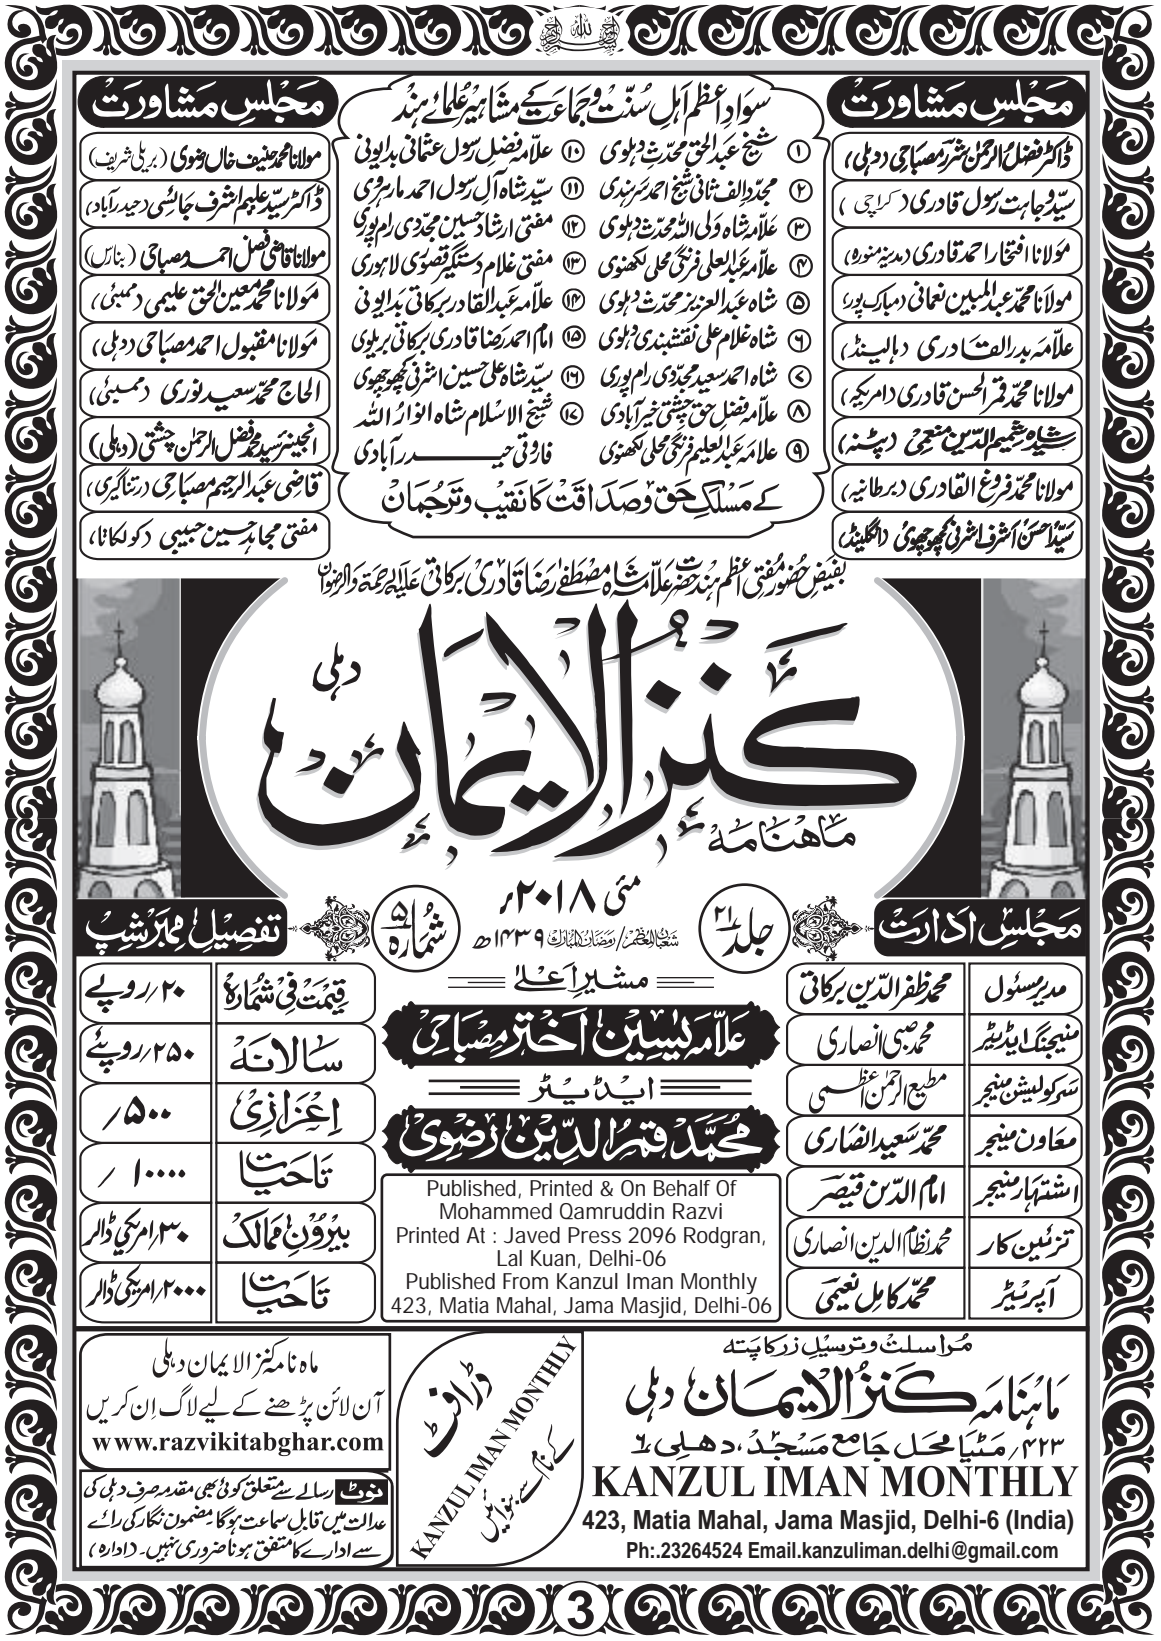 مجلسِ مشاورت
ڈاکٹر فضل الرحمن شرر مصباحی (دہلی)
سید وجاہت رسول قادری (کراچی)
مولانا افتخار احمد قادری (مدینہ منورہ)
مولانا محمد عبدالمبین نعمانی (مبارک پور)
علامہ بدر القادری (ہالینڈ)
مولانا محمد قمر الحسن قادری (امریکہ)
سید شاہ شمیم الدین منعمی (پٹنہ)
مولانا محمد فروغ القادری (برطانیہ)
سید احسن اشرف اشرفی کچھوچھوی (انگلینڈ)
سوادِ اعظم اہلِ سنّت و جماعت کے مشاہیر علمائے ہند
۱ شیخ عبدالحق محدث دہلوی
۲ مجدد الف ثانی شیخ احمد سرہندی
۳ علامہ شاہ ولی اللہ محدث دہلوی
۴ علامہ عبدالعلی فرنگی محلی لکھنوی
۵ شاہ عبدالعزیز محدث دہلوی
۶ شاہ غلام علی نقشبندی دہلوی
۷ شاہ احمد سعید مجددی رام پوری
۸ علامہ فضل حق چشتی خیرآبادی
۹ علامہ عبدالعلیم فرنگی محلی لکھنوی
۱۰ علامہ فضل رسول عثمانی بدایونی
۱۱ سید شاہ آل رسول احمد مارہروی
۱۲ مفتی ارشاد حسین مجددی رام پوری
۱۳ مفتی غلام دستگیر قصوری لاہوری
۱۴ علامہ عبدالقادر برکاتی بدایونی
۱۵ امام احمد رضا قادری برکاتی بریلوی
۱۶ سید شاہ علی حسین اشرفی کچھوچھوی
۱۷ شیخ الاسلام شاہ انوار اللہ
فاروقی حیدرآبادی
کے مسلکِ حق و صداقت کا نقیب و ترجمان
مجلسِ مشاورت
مولانا محمد حنیف خاں رضوی (بریلی شریف)
ڈاکٹر سید علیم اشرف جائسی (حیدرآباد)
مولانا قاضی فضل احمد مصباحی (بنارس)
مولانا محمد معین الحق علیمی (ممبئی)
مولانا مقبول احمد مصباحی (دہلی)
الحاج محمد سعید نوری (ممبئی)
انجینئر سید محمد فضل الرحمن چشتی (دہلی)
قاضی عبدالرحیم مصباحی (رتناگیری)
مفتی مجاہد حسین حبیبی (کولکاتا)
بفیضِ حضور مفتی اعظم ہند حضرت علامہ شاہ مصطفےٰ رضا قادری برکاتی علیہ الرحمۃ والرضوان
ماہنامہ
کنز الایمان
دہلی
مئی ۲۰۱۸ء
شعبان المعظم/رمضان المبارک ۱۴۳۹ھ
جلد ۲۱
شمارہ ۵
مجلسِ ادارت
مدیر مسئول محمد ظفر الدین برکاتی
منیجنگ ایڈیٹر محمد صبی انصاری
سرکولیشن منیجر مطیع الرحمن اعظمی
معاون منیجر محمد سعید انصاری
اشتہار منیجر امام الدین قیصر
تزئین کار محمد نظام الدین انصاری
آپریٹر محمد کامل نعیمی
مشیر اعلیٰ
علامہ یٰسین اختر مصباحی
ایڈیٹر
محمد قمر الدین رضوی
Published, Printed & On Behalf Of
Mohammed Qamruddin Razvi
Printed At : Javed Press 2096 Rodgran,
Lal Kuan, Delhi-06
Published From Kanzul Iman Monthly
423, Matia Mahal, Jama Masjid, Delhi-06
تفصیل ممبر شپ
قیمت فی شمارہ ۲۰/روپے
سالانہ ۲۵۰/روپئے
اعزازی ۵۰۰/
تاحیات ۱۰۰۰۰/
بیرونِ ممالک ۳۰/امریکی ڈالر
تاحیات ۲۰۰۰/امریکی ڈالر
مراسلت و ترسیلِ زر کا پتہ
ماہنامہ کنز الایمان دہلی
۴۲۳/ مٹیا محل جامع مسجد، دہلی ۶
KANZUL IMAN MONTHLY
423, Matia Mahal, Jama Masjid, Delhi-6 (India)
Ph:.23264524 Email.kanzuliman.delhi@gmail.com
ڈرافٹ
KANZUL IMAN MONTHLY
کے نام سے بنوائیں
ماہ نامہ کنز الایمان دہلی
آن لائن پڑھنے کے لیے لاگ اِن کریں
www.razvikitabghar.com
نوٹ رسالے سے متعلق کوئی بھی مقدمہ صرف دہلی کی
عدالت میں قابلِ سماعت ہوگا مضمون نگار کی رائے
سے ادارے کا متفق ہونا ضروری نہیں۔ (ادارہ)
3